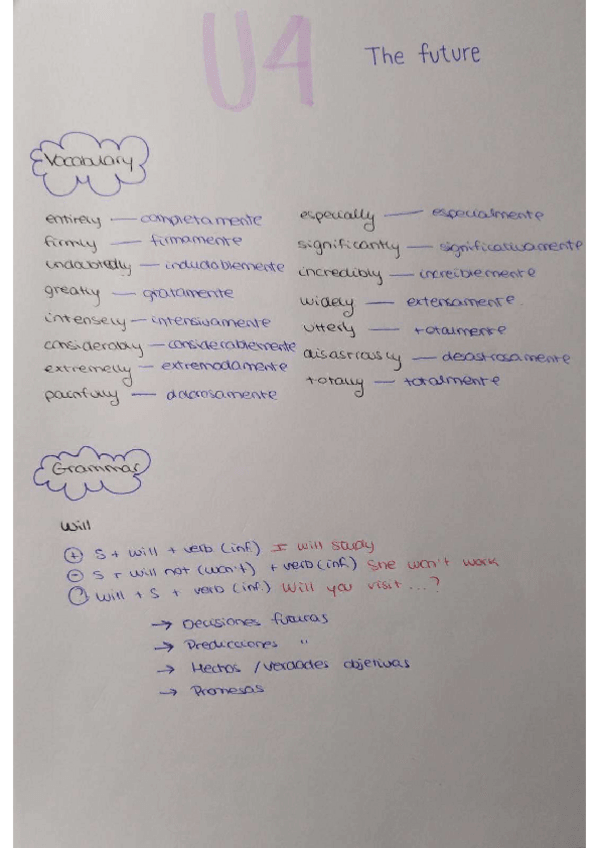 U4
The future
Vocabulary
entirely — completamente
firmly — firmamente
undoubtedly — indudablemente
greatly — gratamente
intensely — intensivamente
considerably — considerablemente
extremelly — extremadamente
painfully — dolorosamente
especially — especialmente
significantly — significativamente
incredibly — increiblemente
widely — extensamente.
utterly — totalmente
disastrously — desastrosamente
totally — totalmente
Grammar
Will
+ S + will + verb (inf.) I will study
- S + will not (won't) + verb (inf.) She won't work
? Will + S + verb (inf.) Will you visit ...?
→ Decisiones futuras
→ Predicciones "
→ Hechos / verdades objetivas
→ Promesas